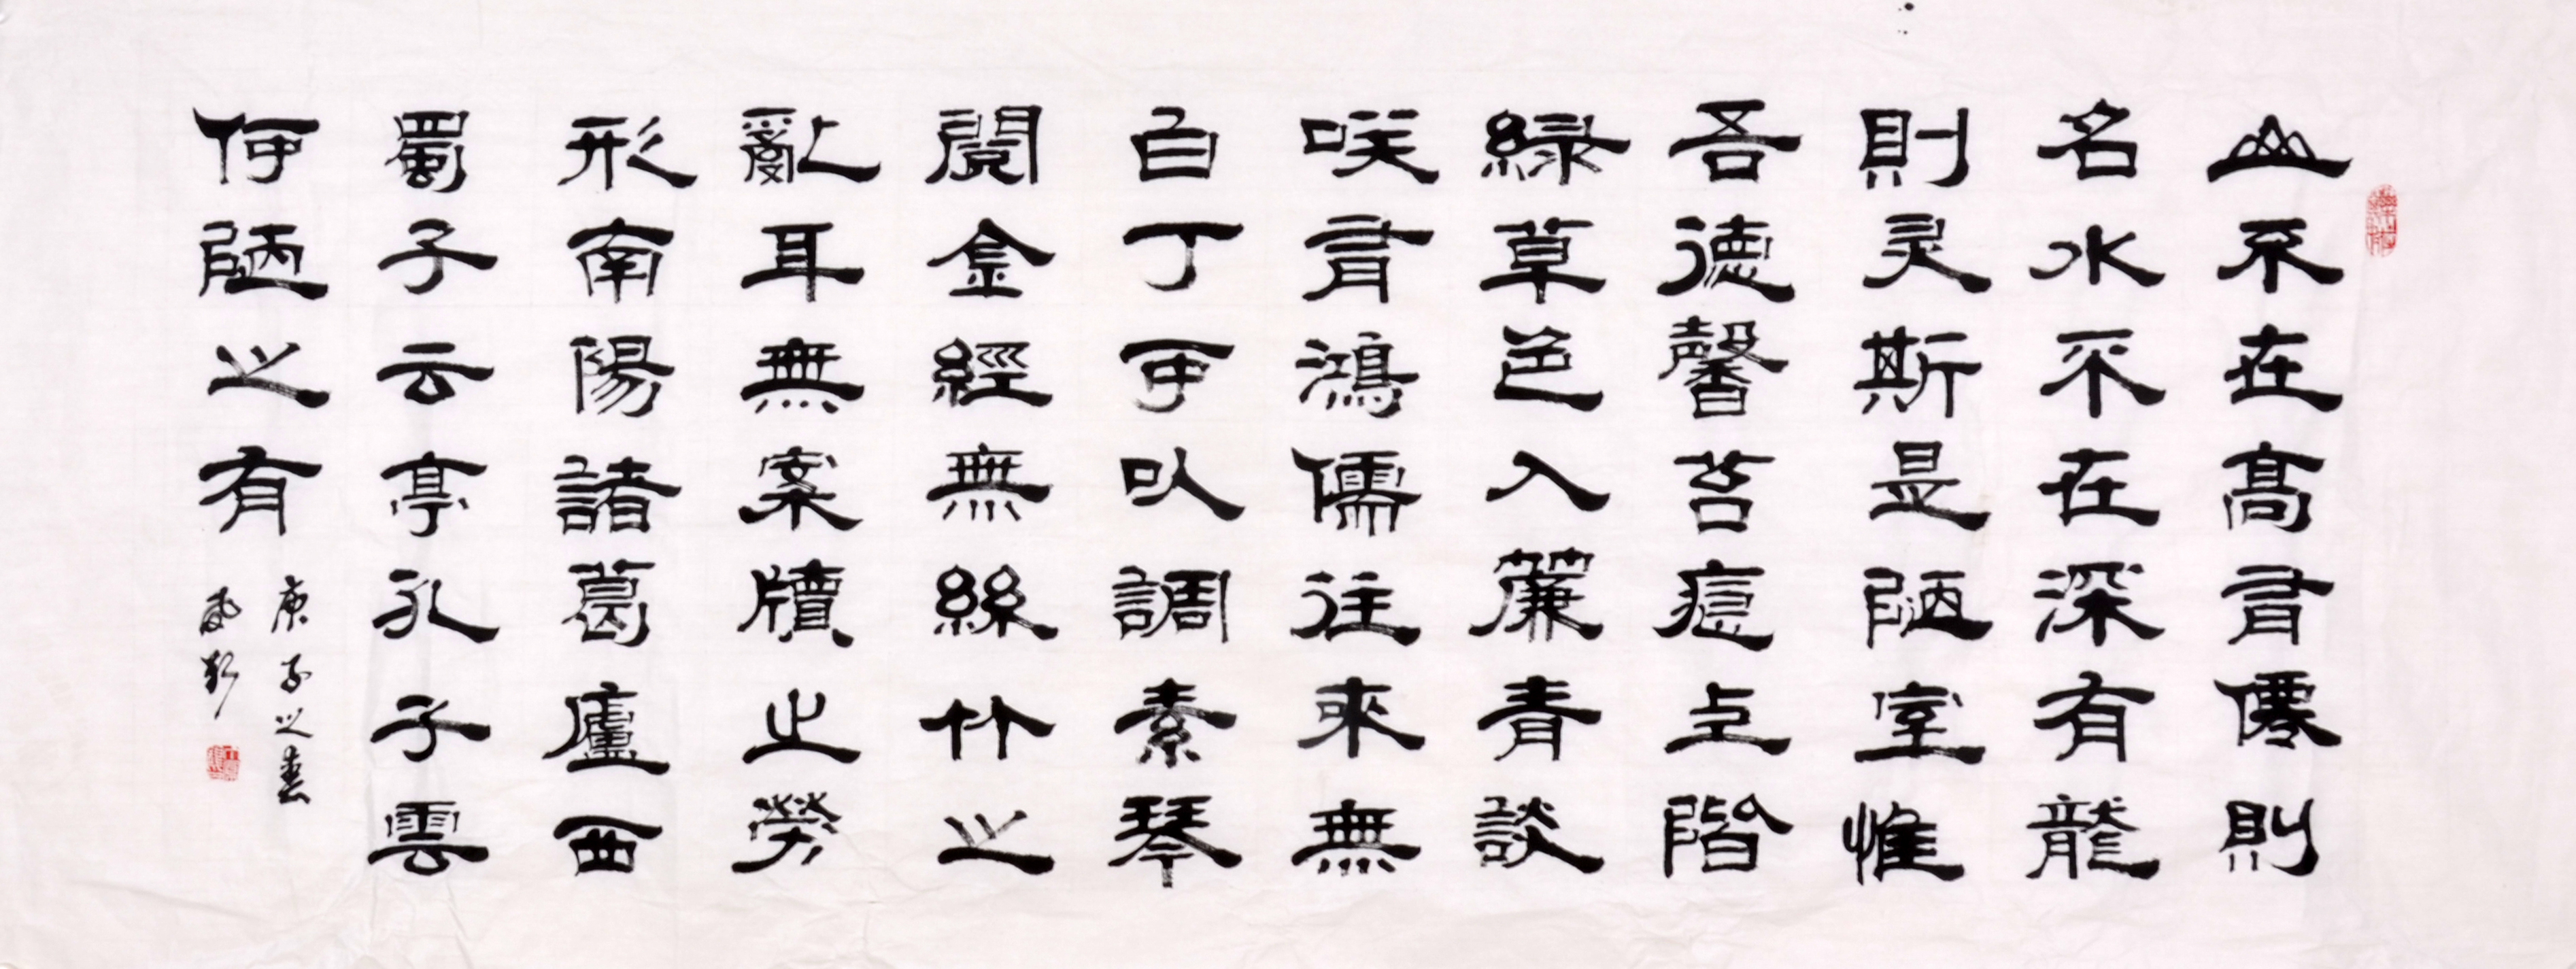 山不在高有僊則
名水不在深有龍
則灵斯是陋室惟
吾徳馨苔痕上階
緑草色入簾青談
咲有鴻儒往來無
白丁可以調素琴
閱金經無絲竹之
亂耳無案牘之勞
形南陽諸葛廬西
蜀子云亭孔子雲
何陋之有
庚子之春